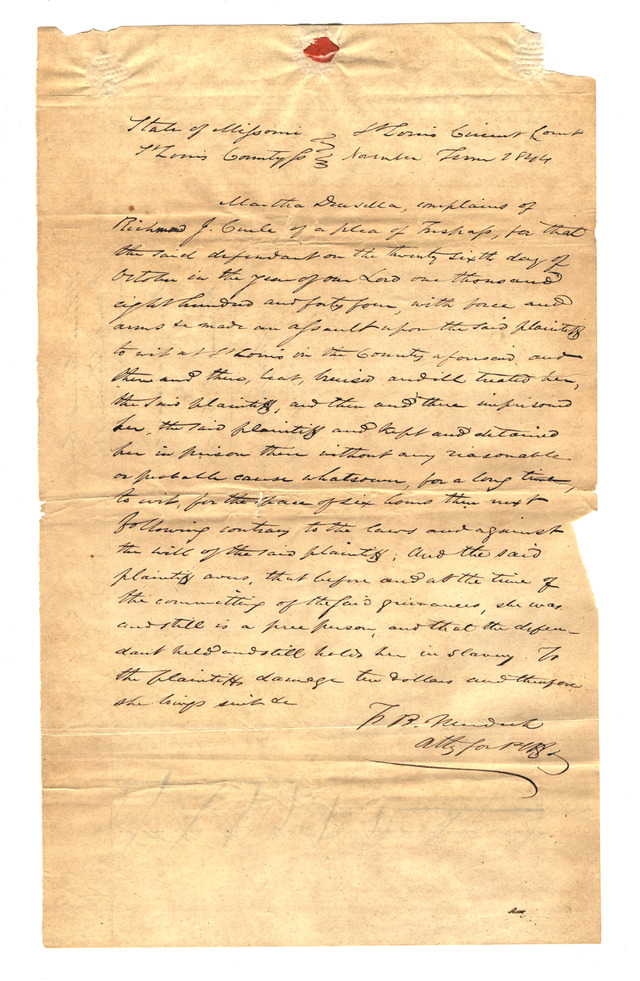 State of Missouri St Louis Circuit Court
St Louis County ss November Term 1844
Martha Drusilla, complains of
Richmond J. Curle of a plea of Trespass, for that
the said defendant on the twenty sixth day of
October in the year of our Lord one thousand
eight hundred and forty four, with force and
arms &c made an assault upon the said plaintiff
to wit at St Louis in the County aforesaid and
then and there, beat, bruised and ill treated her,
the said plaintiff, and then and there imprisoned
her, the said plaintiff and kept and detained
her in prison there without any reasonable
or probable cause whatsoever, for a long time,
to wit, for the space of six hours then next
following contrary to the laws and against
the will of the said plaintiff; And the said
plaintiff avers, that before and at the time of
the committing of the said grievances, she was
and still is a free person, and that the defen-
dant held and still holds her in slavery. To
the plaintiffs damage ten dollars and therefore
she brings suit &c
F. B. Murdoch
Atty for Plff